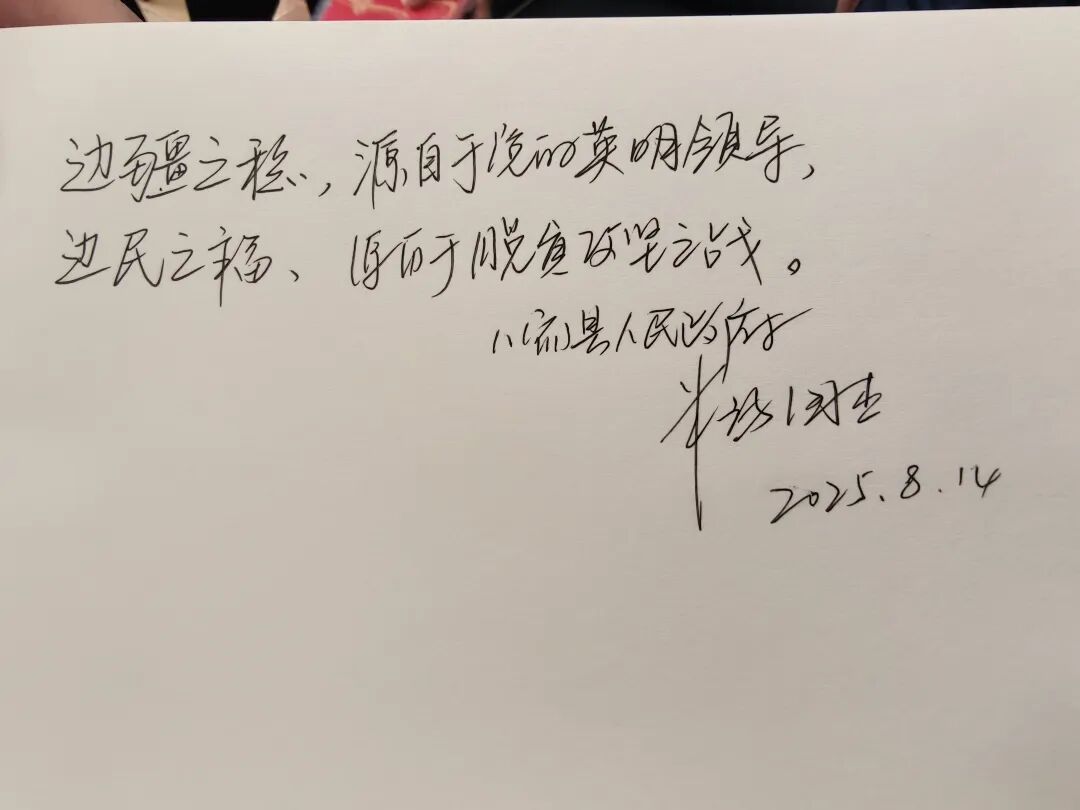 边疆之稳，源自于党的英明领导，
边民之福、源自于脱贫攻坚之战。
县人民政府
2025.8.14